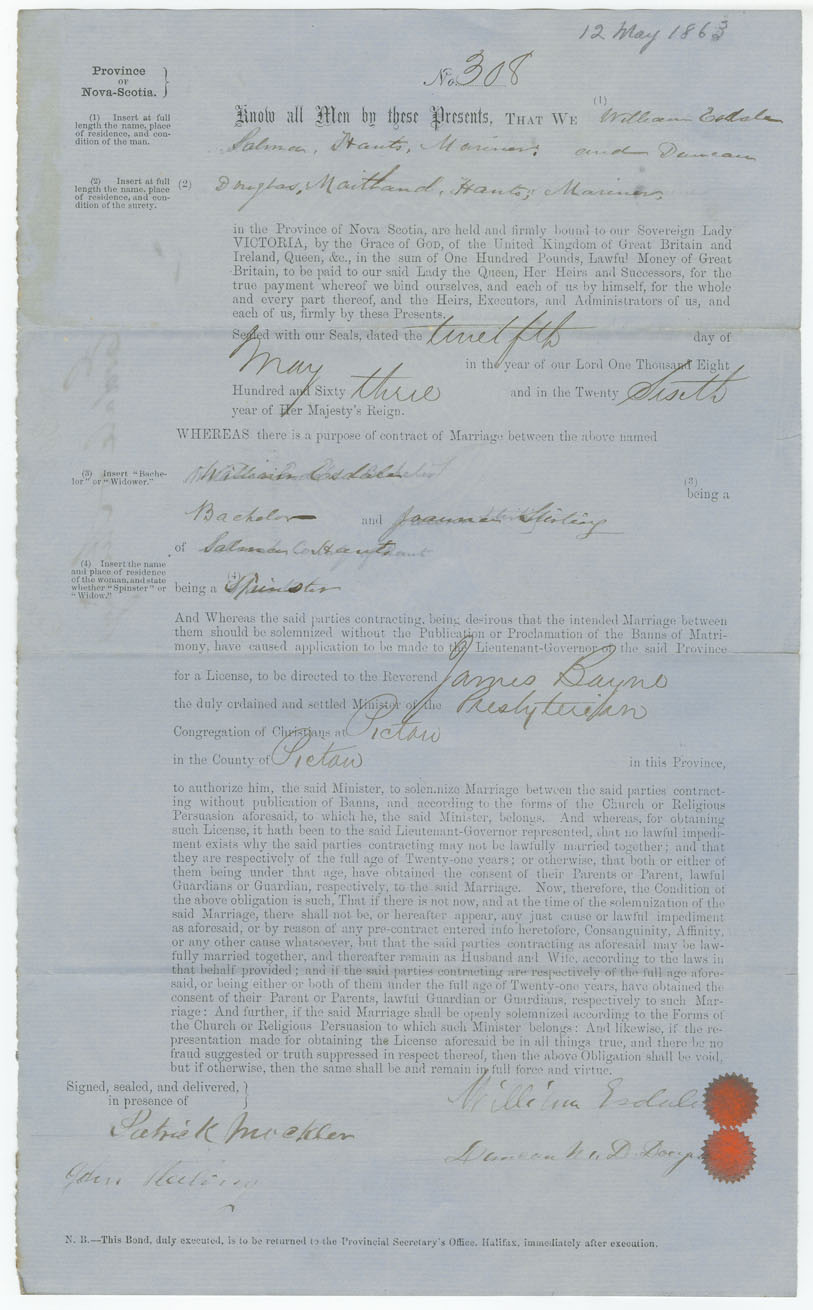 12 May 1863
Province
OF
Nova-Scotia.
No. 308
(1) Insert at full
length the name, place
of residence, and con-
dition of the man.
Know all Men by these Presents, THAT WE (1) William Esdale
Salmon, Hants, Mariner; and Duncan
(2) Insert at full
length the name, place
of residence, and con-
dition of the surety.
(2) Douglas, Maitland, Hants; Mariner,
in the Province of Nova Scotia, are held and firmly bound to our Sovereign Lady
VICTORIA, by the Grace of God, of the United Kingdom of Great Britain and
Ireland, Queen, &c., in the sum of One Hundred Pounds, Lawful Money of Great
Britain, to be paid to our said Lady the Queen, Her Heirs and Successors, for the
true payment whereof we bind ourselves, and each of us by himself, for the whole
and every part thereof, and the Heirs, Executors, and Administrators of us, and
each of us, firmly by these Presents.
Sealed with our Seals, dated the twelfth day of
May in the year of our Lord One Thousand Eight
Hundred and Sixty three and in the Twenty Sixth
year of Her Majesty's Reign.
WHEREAS there is a purpose of contract of Marriage between the above named
(3) Insert "Bache-
lor" or "Widower."
William Esdale (3) being a
Bachelor and Joanna Stirling
of Salmon Hants
(4) Insert the name
and place of residence
of the woman, and state
whether "Spinster" or
"Widow."
being a (4) Spinster
And Whereas the said parties contracting, being desirous that the intended Marriage between
them should be solemnized without the Publication or Proclamation of the Banns of Matri-
mony, have caused application to be made to the Lieutenant-Governor of the said Province
for a License, to be directed to the Reverend James Bayne
the duly ordained and settled Minister of the Presbyterian
Congregation of Christians at Pictou
in the County of Pictou in this Province,
to authorize him, the said Minister, to solemnize Marriage between the said parties contract-
ing without publication of Banns, and according to the forms of the Church or Religious
Persuasion aforesaid, to which he, the said Minister, belongs. And whereas, for obtaining
such License, it hath been to the said Lieutenant-Governor represented, that no lawful impedi-
ment exists why the said parties contracting may not be lawfully married together; and that
they are respectively of the full age of Twenty-one years; or otherwise, that both or either of
them being under that age, have obtained the consent of their Parents or Parent, lawful
Guardians or Guardian, respectively, to the said Marriage. Now, therefore, the Condition of
the above obligation is such, That if there is not now, and at the time of the solemnization of the
said Marriage, there shall not be, or hereafter appear, any just cause or lawful impediment
as aforesaid, or by reason of any pre-contract entered into heretofore, Consanguinity, Affinity,
or any other cause whatsoever, but that the said parties contracting as aforesaid may be law-
fully married together, and thereafter remain as Husband and Wife, according to the laws in
that behalf provided; and if the said parties contracting are respectively of the full age afore-
said, or being either or both of them under the full age of Twenty-one years, have obtained the
consent of their Parent or Parents, lawful Guardian or Guardians, respectively to such Mar-
riage: And further, if the said Marriage shall be openly solemnized according to the Forms of
the Church or Religious Persuasion to which such Minister belongs: And likewise, if the re-
presentation made for obtaining the License aforesaid be in all things true, and there be no
fraud suggested or truth suppressed in respect thereof, then the above Obligation shall be void,
but if otherwise, then the same shall be and remain in full force and virtue.
Signed, sealed, and delivered,
in presence of
William Esdale
Patrick Mockler
Duncan
John
N. B.—This Bond, duly executed, is to be returned to the Provincial Secretary's Office, Halifax, immediately after execution.